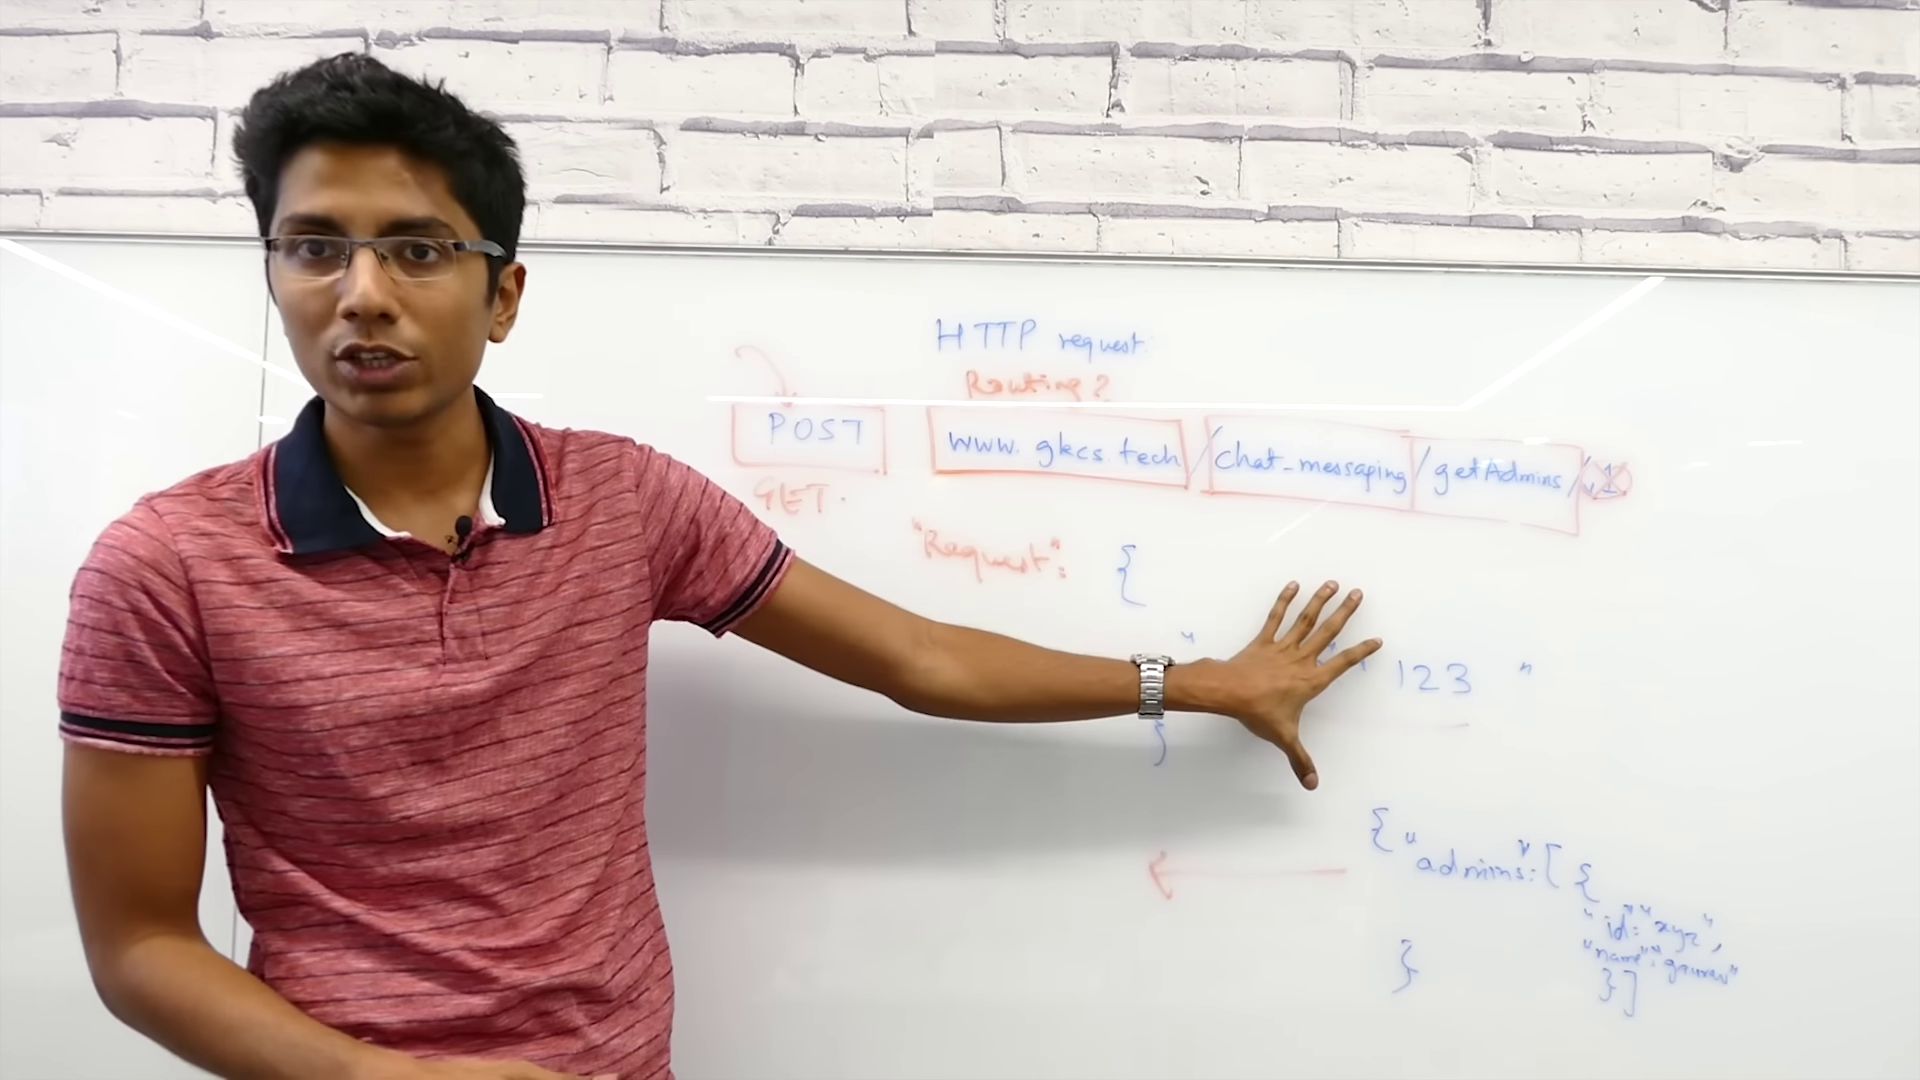 HTTP request.
Routing?
POST www.gkcs.tech/chat_messaging/getAdmins/
GET.
"Request": {
123 "
}
{ "admins": [ {
"id": "xyz",
"name": "gaurav"
} ]
}